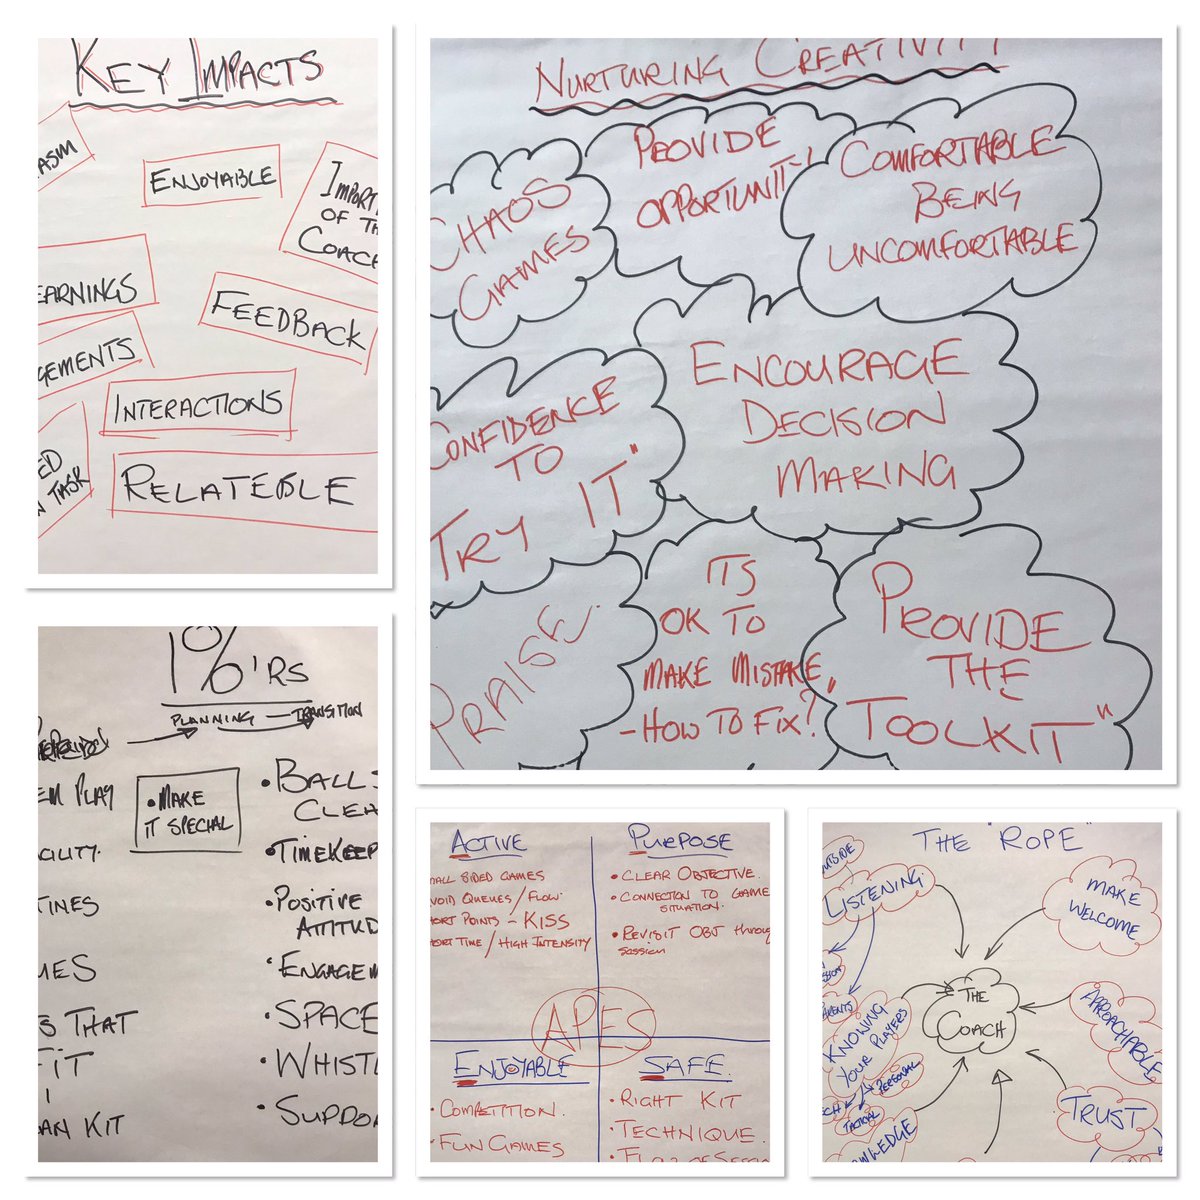 KEY IMPACTS
ENJOYABLE
OF THE
COACH
EARNINGS
FEEDBACK
GEMENTS
INTERACTIONS
ED
TASK
RELATEBLE
NURTURING CREATIVITY
CHAOS
GAMES
PROVIDE
OPPORTUNITY
COMFORTABLE
BEING
UNCOMFORTABLE
CONFIDENCE
TO
TRY IT"
ENCOURAGE
DECISION
MAKING
PRAISE.
ITS
OK TO
MAKE MISTAKE,
- HOW TO FIX?
PROVIDE
THE
TOOLKIT"
1%'RS
PLANNING TRANSITION
PLAY
• MAKE
IT SPECIAL
• BALLS
CLEA
• TIMEKEEP
• POSITIVE
ATTITUD
• ENGAGEM
• SPACE
THAT
• WHISTL
FIT
KIT
• SUPPO
ACTIVE
SIDED GAMES
VOID QUEUES / FLOW.
HORT POINTS - KISS
HORT TIME / HIGH INTENSITY
PURPOSE
• CLEAR OBJECTIVE.
• CONNECTION TO GAME
SITUATION.
• REVISIT OBJ through
session
APES
ENJOYABLE
• COMPETITION.
• FUN GAMES
SAFE.
• RIGHT KIT
• TECHNIQUE.
THE "ROPE"
LISTENING.
MAKE
WELCOME
THE
COACH
APPROACHABLE
KNOWING
YOUR PLAYERS
PERSONAL
TACTICAL
TRUST